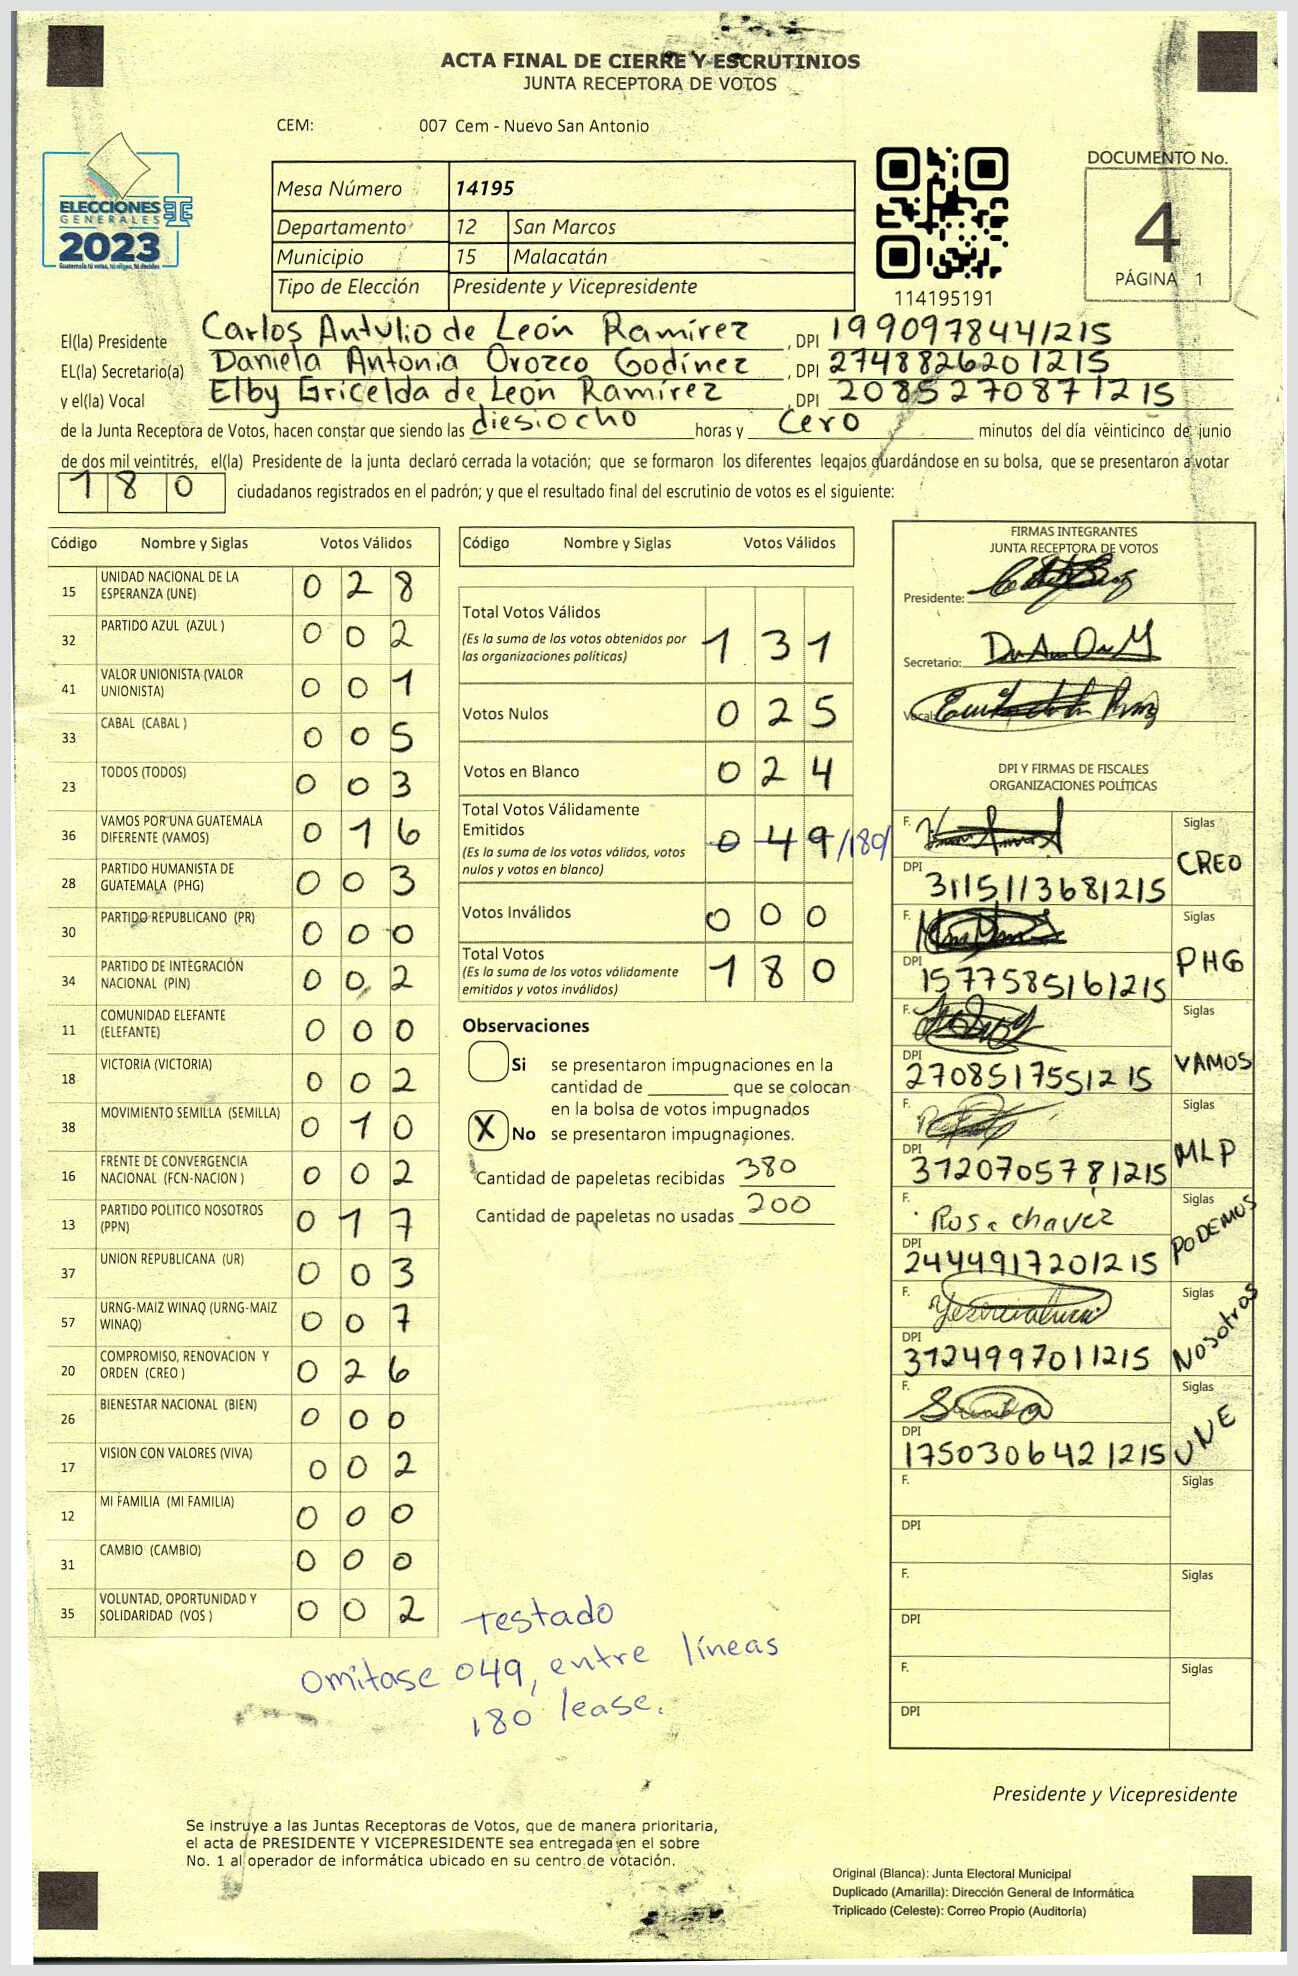 ACTA FINAL DE CIERRE Y ESCRUTINIOS
JUNTA RECEPTORA DE VOTOS
CEM: 007 Cem - Nuevo San Antonio
ELECCIONES
GENERALES
2023
Guatemala tú votas, tú eliges, tú decides
Mesa Número 14195
Departamento 12 San Marcos
Municipio 15 Malacatán
Tipo de Elección Presidente y Vicepresidente
114195191
DOCUMENTO No.
4
PÁGINA 1
El(la) Presidente Carlos Antulio de León Ramírez, DPI 1990978441215
EL(la) Secretario(a) Daniela Antonia Orozco Godínez, DPI 2748826201215
y el(la) Vocal Elby Gricelda de León Ramírez, DPI 2085270871215
de la Junta Receptora de Votos, hacen constar que siendo las diesiocho horas y Cero minutos del día veinticinco de junio
de dos mil veintitrés, el(la) Presidente de la junta declaró cerrada la votación; que se formaron los diferentes legajos guardándose en su bolsa, que se presentaron a votar
180 ciudadanos registrados en el padrón; y que el resultado final del escrutinio de votos es el siguiente:
Código Nombre y Siglas Votos Válidos
15 UNIDAD NACIONAL DE LA ESPERANZA (UNE) 028
32 PARTIDO AZUL (AZUL ) 002
41 VALOR UNIONISTA (VALOR UNIONISTA) 001
33 CABAL (CABAL ) 005
23 TODOS (TODOS) 003
36 VAMOS POR UNA GUATEMALA DIFERENTE (VAMOS) 016
28 PARTIDO HUMANISTA DE GUATEMALA (PHG) 003
30 PARTIDO REPUBLICANO (PR) 000
34 PARTIDO DE INTEGRACIÓN NACIONAL (PIN) 002
11 COMUNIDAD ELEFANTE (ELEFANTE) 000
18 VICTORIA (VICTORIA) 002
38 MOVIMIENTO SEMILLA (SEMILLA) 010
16 FRENTE DE CONVERGENCIA NACIONAL (FCN-NACION ) 002
13 PARTIDO POLITICO NOSOTROS (PPN) 017
37 UNION REPUBLICANA (UR) 003
57 URNG-MAIZ WINAQ (URNG-MAIZ WINAQ) 007
20 COMPROMISO, RENOVACION Y ORDEN (CREO ) 026
26 BIENESTAR NACIONAL (BIEN) 000
17 VISION CON VALORES (VIVA) 002
12 MI FAMILIA (MI FAMILIA) 000
31 CAMBIO (CAMBIO) 000
35 VOLUNTAD, OPORTUNIDAD Y SOLIDARIDAD (VOS ) 002
Código Nombre y Siglas Votos Válidos
Total Votos Válidos
(Es la suma de los votos obtenidos por
las organizaciones políticas) 131
Votos Nulos 025
Votos en Blanco 024
Total Votos Válidamente
Emitidos
(Es la suma de los votos válidos, votos
nulos y votos en blanco) 049 /180/
Votos Inválidos 000
Total Votos
(Es la suma de los votos válidamente
emitidos y votos inválidos) 180
Observaciones
Si se presentaron impugnaciones en la
cantidad de ________ que se colocan
en la bolsa de votos impugnados
X No se presentaron impugnaciones.
Cantidad de papeletas recibidas 380
Cantidad de papeletas no usadas 200
FIRMAS INTEGRANTES
JUNTA RECEPTORA DE VOTOS
Presidente:
Secretario:
Vocal:
DPI Y FIRMAS DE FISCALES
ORGANIZACIONES POLÍTICAS
F. Siglas
DPI 3115113681215 CREO
F. Siglas
DPI 1577585161215 PHG
F. Siglas
DPI 2708517551215 VAMOS
F. Siglas
DPI 3120705781215 MLP
F. Rosa chavez Siglas
DPI 2444917201215 PODEMOS
F. Siglas
DPI 3124997011215 Nosotros
F. Siglas
DPI 1750306421215 UNE
F. Siglas
DPI
F. Siglas
DPI
F. Siglas
DPI
Testado
Omitase 049, entre líneas
180 lease.
Presidente y Vicepresidente
Se instruye a las Juntas Receptoras de Votos, que de manera prioritaria,
el acta de PRESIDENTE Y VICEPRESIDENTE sea entregada en el sobre
No. 1 al operador de informática ubicado en su centro de votación.
Original (Blanca): Junta Electoral Municipal
Duplicado (Amarilla): Dirección General de Informática
Triplicado (Celeste): Correo Propio (Auditoría)